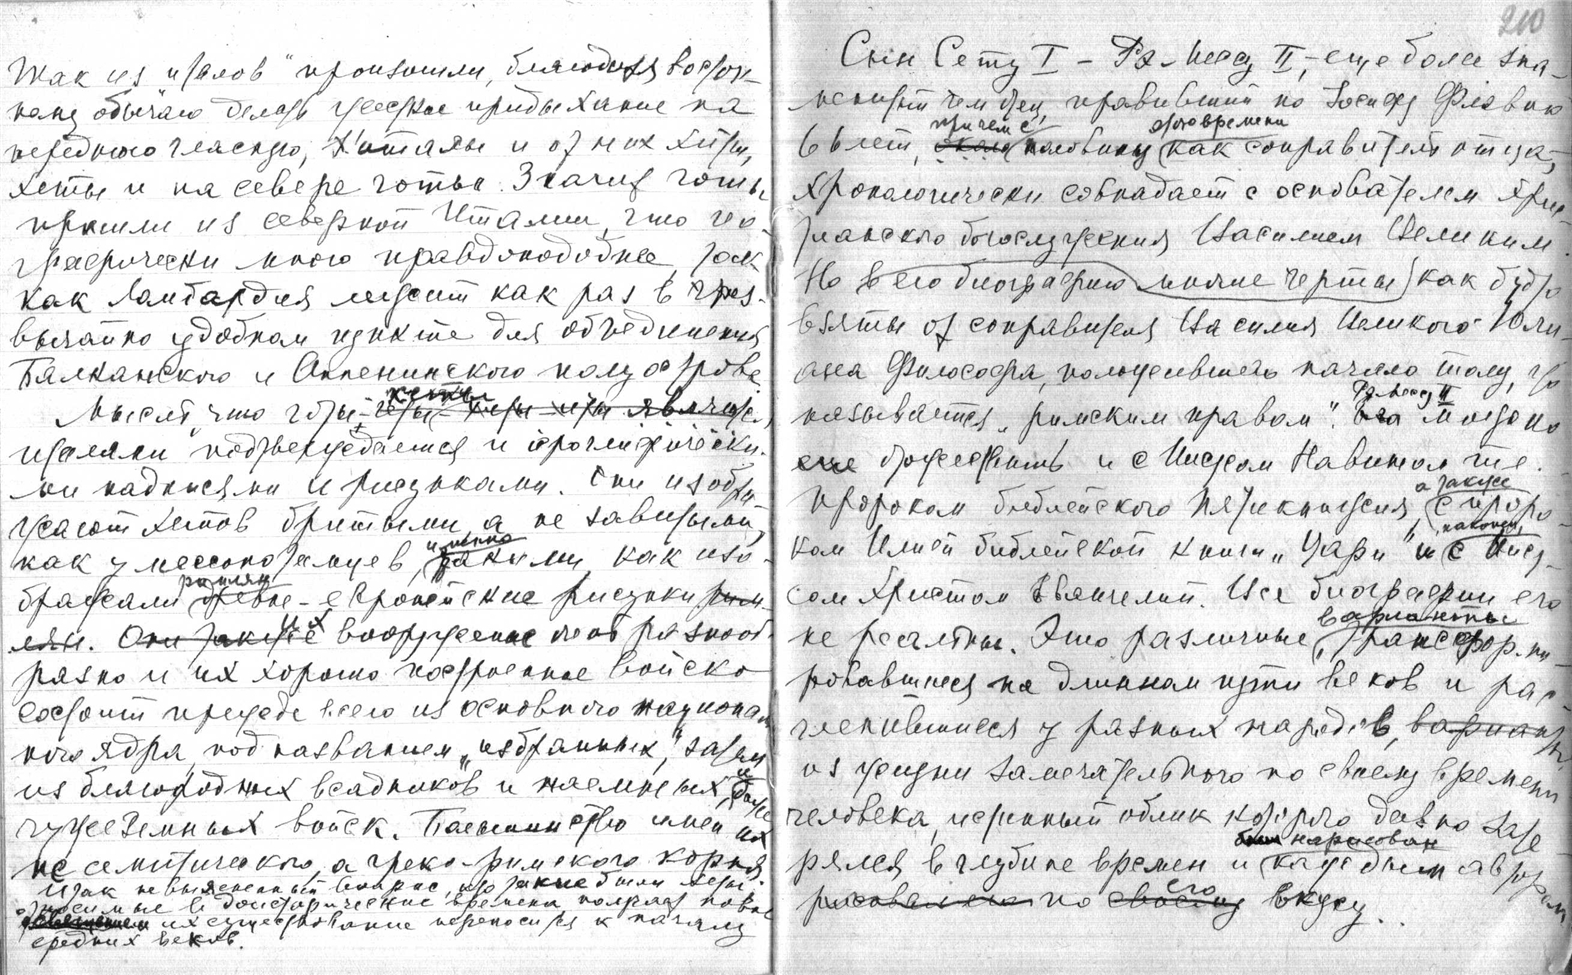 Так из италов" произошли, благодаря восточ-
ному обычаю делать густое придыхание на
переднюю гласную, хиталы и от них хиты,
хеты и на севере готы. Значит готы
пришли из северной Италии, что гео-
графически много правдоподобнее, так
как Ломбардия лежит как раз в чрез-
вычайно удобном пункте для объединения
Балканского и Аппенинского полуострова
Мысль, что готы-геты хеты
италами подтверждается и иероглифически-
ми надписями и рисунками. Они изобра-
жают хетов бритыми, а не завитыми,
как у месопотамцев, именно такими, как изо-
бражали римлян древне-европейские рисунки
их вооружение разнооб-
разно и их хорошо построенное войско
состоит прежде всего из основного национал-
ного ядра, под названием „избранных", затем
из благородных всадников и наемных, и
чужеземных войск. Большинство имен их
не семитического, а греко-римского корня.
Итак невыясненный вопрос, кто такие были хеты
относимые в доисторические времена получает новое
их существование переносится к началу
средних веков.
210
Сын Сету I – Ра-Месу II, еще более зна-
менитый чем отец, правивший по Иосифу Флавию
66 лет, причем с половину этого времени как соправитель отца,
хронологически совпадает с основателем хрис-
тианского богослужения Василием Великим.
Но в его биографию иные черты как будто
взяты от соправителя Василия Великого Юли-
ана Философа, положившего начало тому, что
называется „римским правом". Ра-Месу II можно
еще отожествить и с Иисусом Навином т.е.
пророком библейского Пятикнижия, а также с проро-
ком Илией библейской книги „Цари" и наконец, с Иису-
сом Христом Евангелий. Все биографии его
не реальны. Это различные варианты, трансформи-
ровавшиеся на длинном пути веков и рас-
членившиеся у разных народов,
из жизни замечательного по своему времени
человека, истинный облик которого давно зате-
рялся в глубине времен и нарисован каждым автором
по его вкусу.